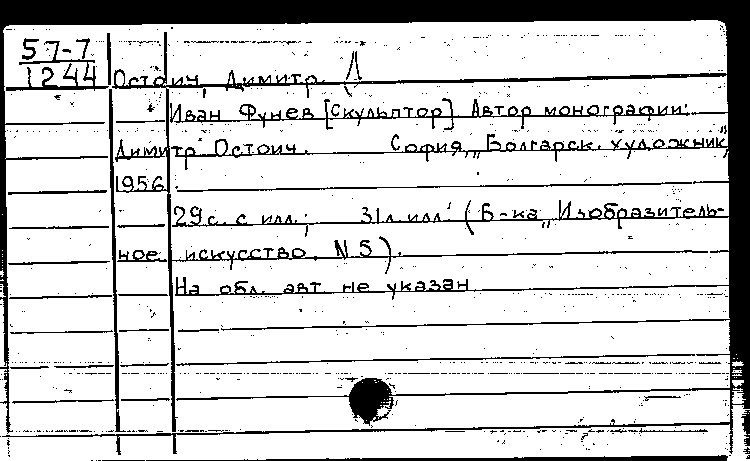 57-7
1244
Остоич, Димитр.
Иван Фунев [Скульптор] Автор монографии:
Димитр Остоич. София, „Болгарск. художник",
1956.
29 с. с илл.; 31 л. илл. (Б-ка „Изобразитель-
ное искусство. N 5).
На обл. авт. не указан